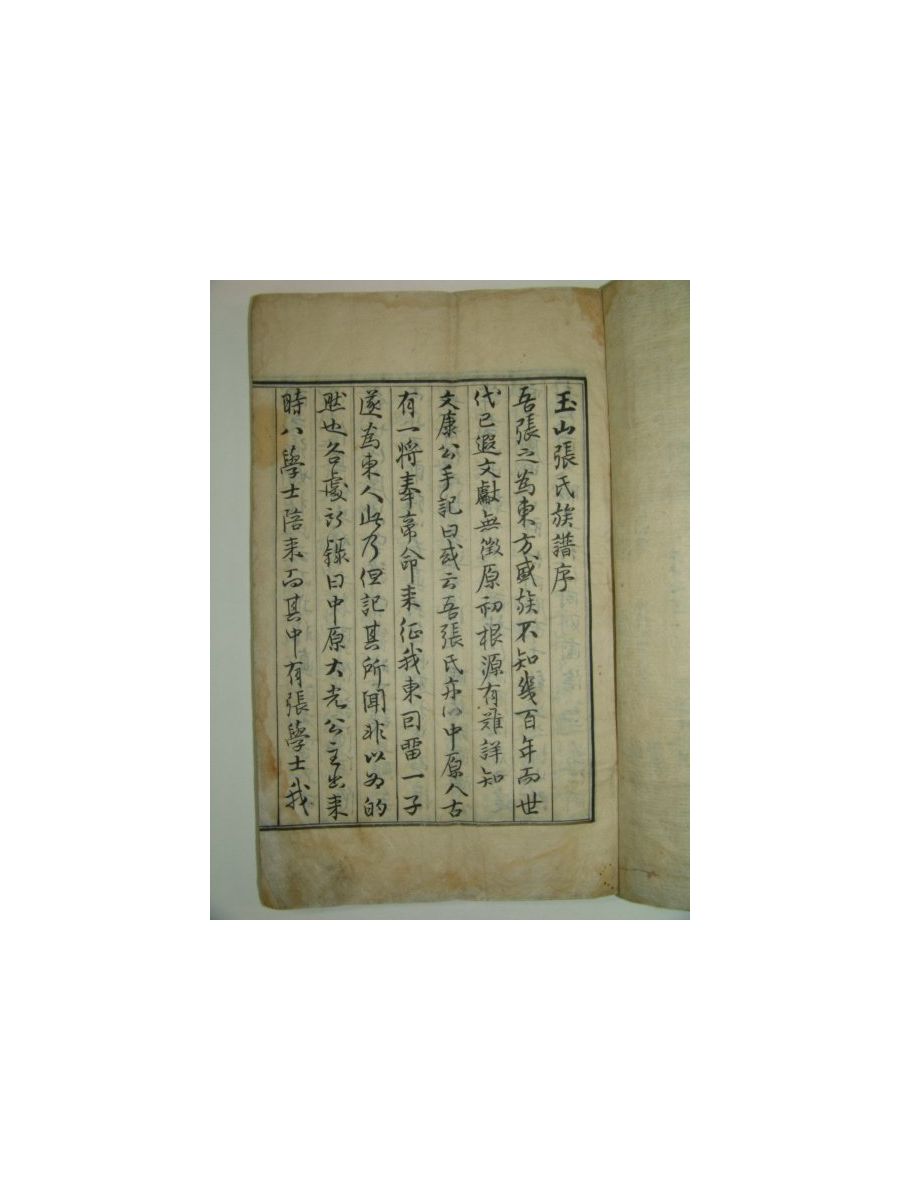 玉山張氏族譜序
吾張之為東方盛族不知幾百年而世
代已遐文獻無徵原初根源有難詳知
文康公手記曰或云吾張氏亦以中原人古
有一將奉帝命来征我東因留一子
遂為東人此乃但記其所聞非以為的
然也各處所錄曰中原大光公主出来
時八學士陪来而其中有張學士我